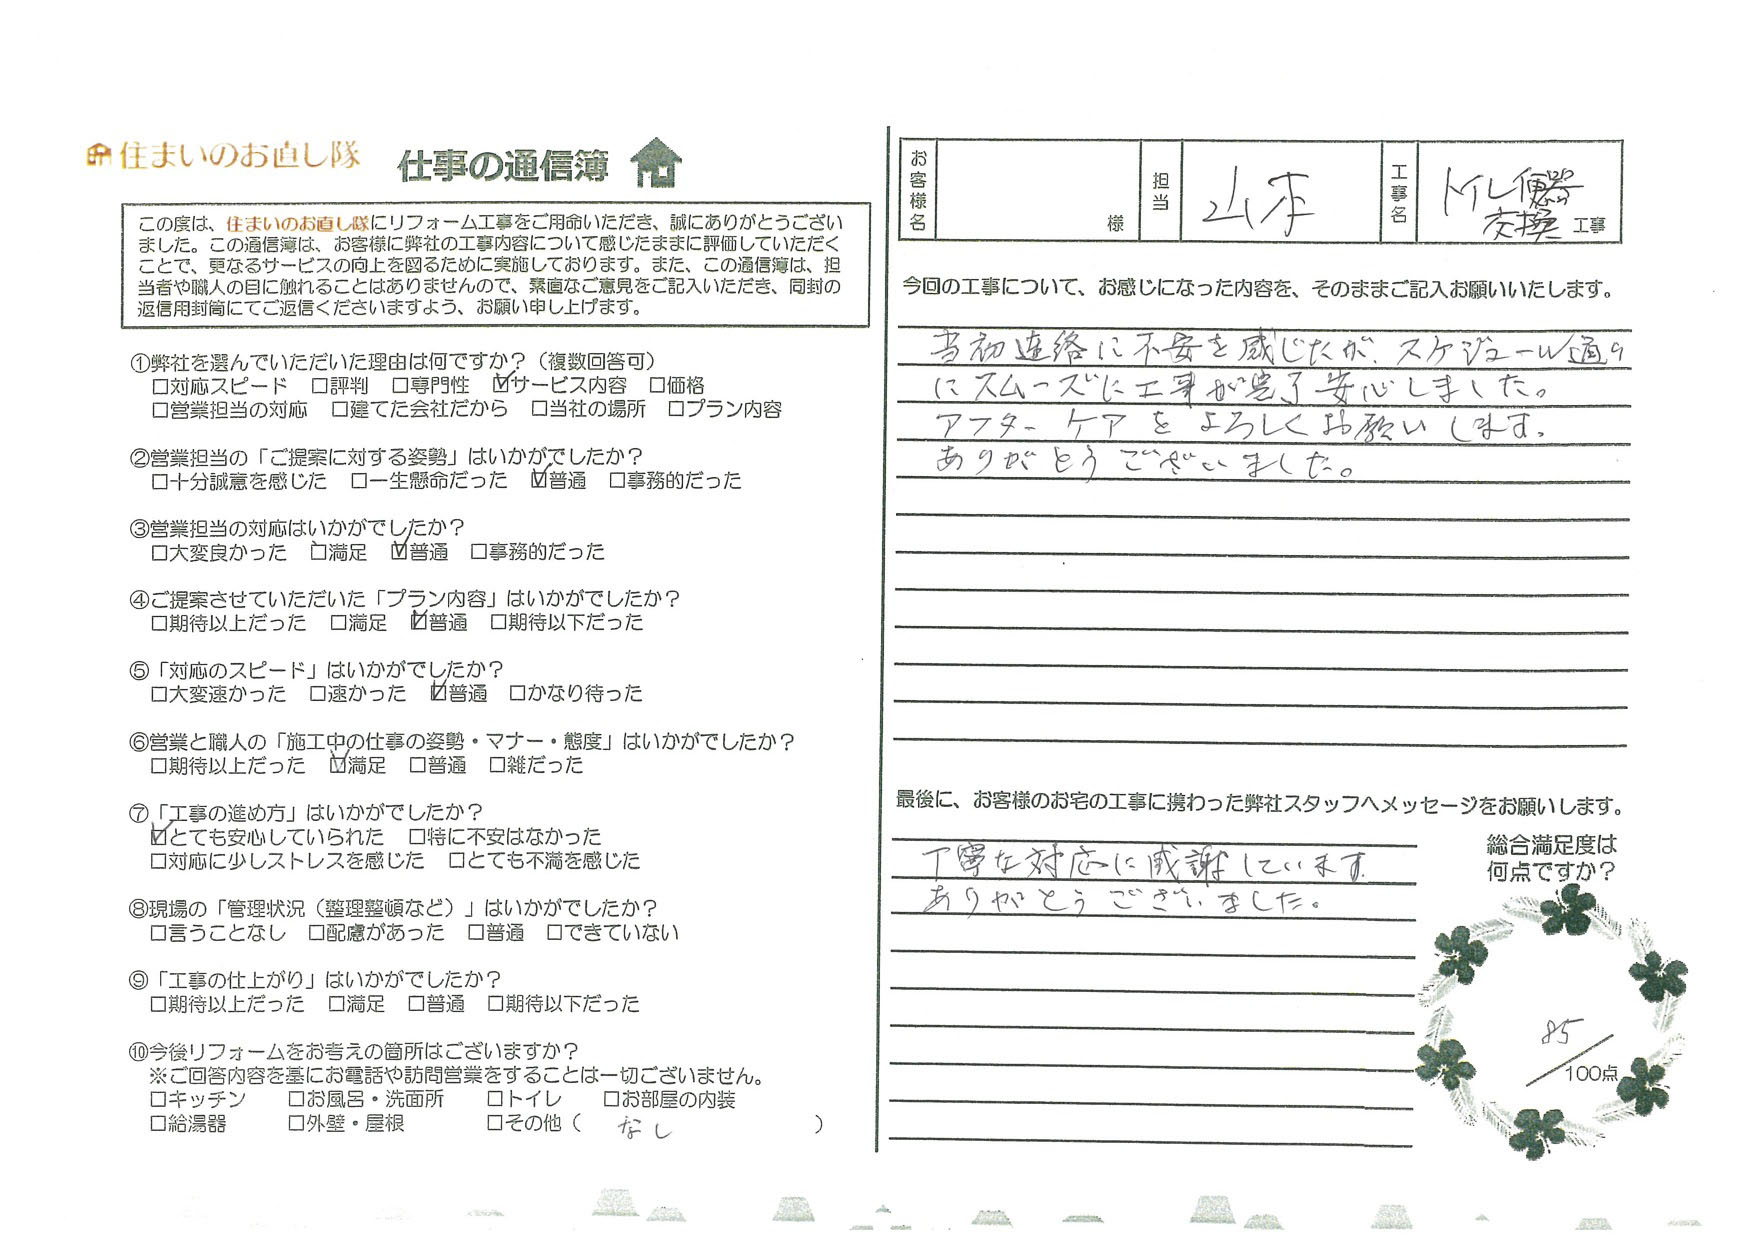 住まいのお直し隊 仕事の通信簿
この度は、住まいのお直し隊にリフォーム工事をご用命いただき、誠にありがとうござい
ました。この通信簿は、お客様に弊社の工事内容について感じたままに評価していただく
ことで、更なるサービスの向上を図るために実施しております。また、この通信簿は、担
当者や職人の目に触れることはありませんので、素直なご意見をご記入いただき、同封の
返信用封筒にてご返信くださいますよう、お願い申し上げます。
①弊社を選んでいただいた理由は何ですか？（複数回答可）
□対応スピード □評判 □専門性 ☑サービス内容 □価格
□営業担当の対応 □建てた会社だから □当社の場所 □プラン内容
②営業担当の「ご提案に対する姿勢」はいかがでしたか？
□十分誠意を感じた □一生懸命だった ☑普通 □事務的だった
③営業担当の対応はいかがでしたか？
□大変良かった □満足 ☑普通 □事務的だった
④ご提案させていただいた「プラン内容」はいかがでしたか？
□期待以上だった □満足 ☑普通 □期待以下だった
⑤「対応のスピード」はいかがでしたか？
□大変速かった □速かった ☑普通 □かなり待った
⑥営業と職人の「施工中の仕事の姿勢・マナー・態度」はいかがでしたか？
□期待以上だった ☑満足 □普通 □雑だった
⑦「工事の進め方」はいかがでしたか？
☑とても安心していられた □特に不安はなかった
□対応に少しストレスを感じた □とても不満を感じた
⑧現場の「管理状況（整理整頓など）」はいかがでしたか？
□言うことなし □配慮があった □普通 □できていない
⑨「工事の仕上がり」はいかがでしたか？
□期待以上だった □満足 □普通 □期待以下だった
⑩今後リフォームをお考えの箇所はございますか？
※ご回答内容を基にお電話や訪問営業をすることは一切ございません。
□キッチン □お風呂・洗面所 □トイレ □お部屋の内装
□給湯器 □外壁・屋根 □その他（ なし ）
お客様名 様 担当 山本 工事名 トイレ便器
交換 工事
今回の工事について、お感じになった内容を、そのままご記入お願いいたします。
当初連絡に不安を感じたが、スケジュール通り
にスムーズに工事が完了安心しました。
アフターケアをよろしくお願いします。
ありがとうございました。
最後に、お客様のお宅の工事に携わった弊社スタッフへメッセージをお願いします。
丁寧な対応に感謝しています
ありがとうございました。
総合満足度は
何点ですか？
85
100点